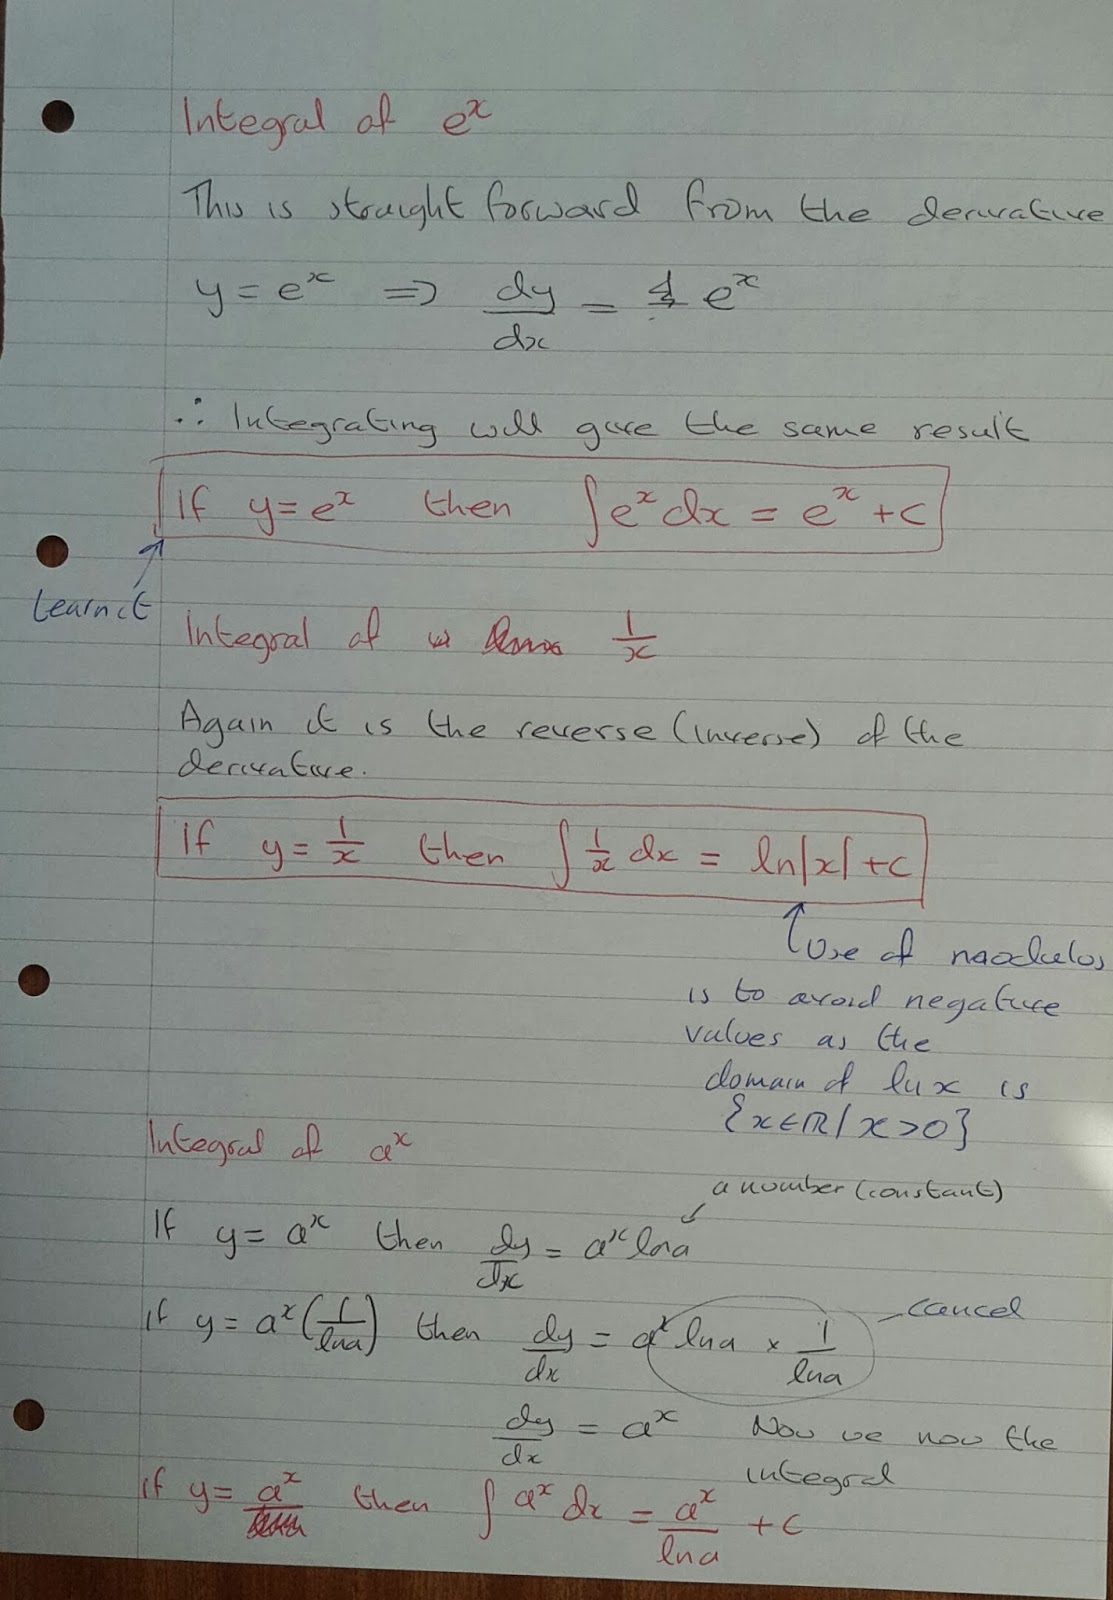 Integral of eˣ
This is straight forward from the derivative
y = eˣ ⇒ dy/dx = eˣ
∴ Integrating will give the same result
If y = eˣ then ∫eˣ dx = eˣ + c
Learn it
Integral of 1/x
Again it is the reverse (inverse) of the
derivative.
If y = 1/x then ∫ 1/x dx = ln|x| + c
Use of modulus
is to avoid negative
values as the
domain of ln x is
{x ∈ ℝ / x > 0}
Integral of aˣ
a number (constant)
If y = aˣ then dy/dx = aˣ ln a
If y = aˣ (1/ln a) then dy/dx = aˣ ln a × 1/ln a
cancel
dy/dx = aˣ Now we now the
integral
If y = aˣ then ∫ aˣ dx = aˣ/ln a + c